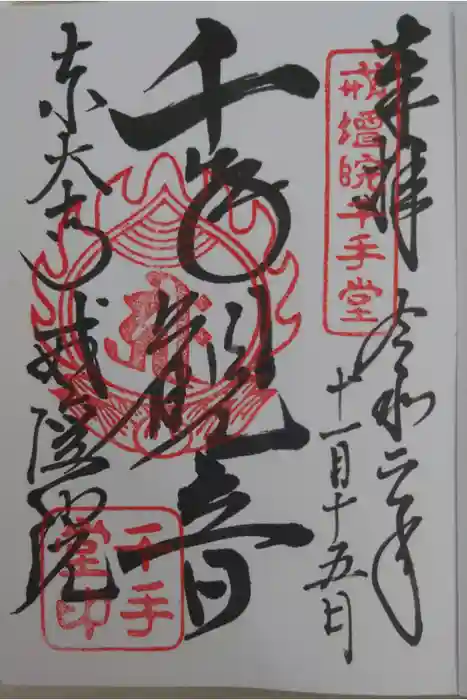 奉拝 令和二年
十一月十五日
戒壇院千手堂
千手観音
東大寺戒壇院
千手
堂印